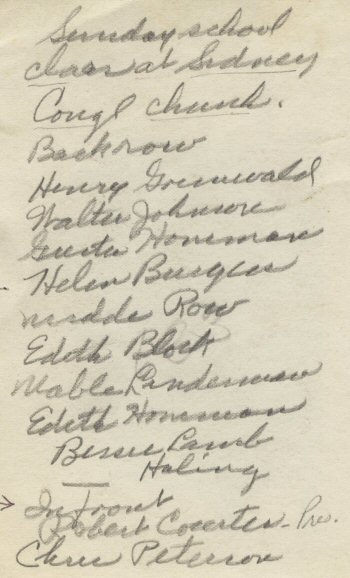 Sunday school
class at Sidney
Congl Church.
Back row
Henry Grunwald
Walter Johnson
Gusta Honeman
Helen Burgess
middle Row
Edith Block
Mable Linderman
Edith Honeman
Bessie Lamb
Haling
In Front
Robert
Chris Peterson